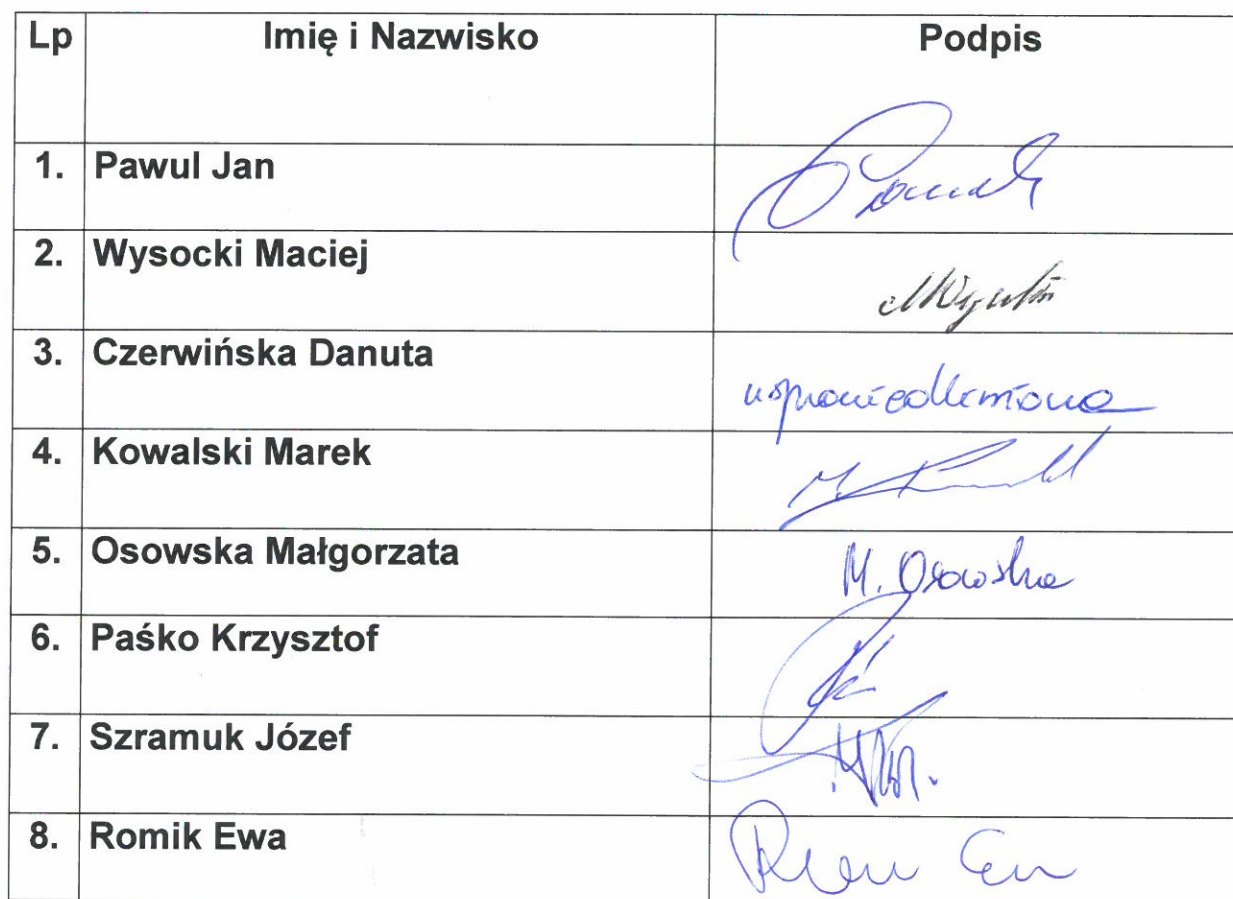 Lp Imię i Nazwisko Podpis
1. Pawul Jan
2. Wysocki Maciej
3. Czerwińska Danuta usprawiedliwiona
4. Kowalski Marek
5. Osowska Małgorzata M. Osowska
6. Paśko Krzysztof
7. Szramuk Józef
8. Romik Ewa